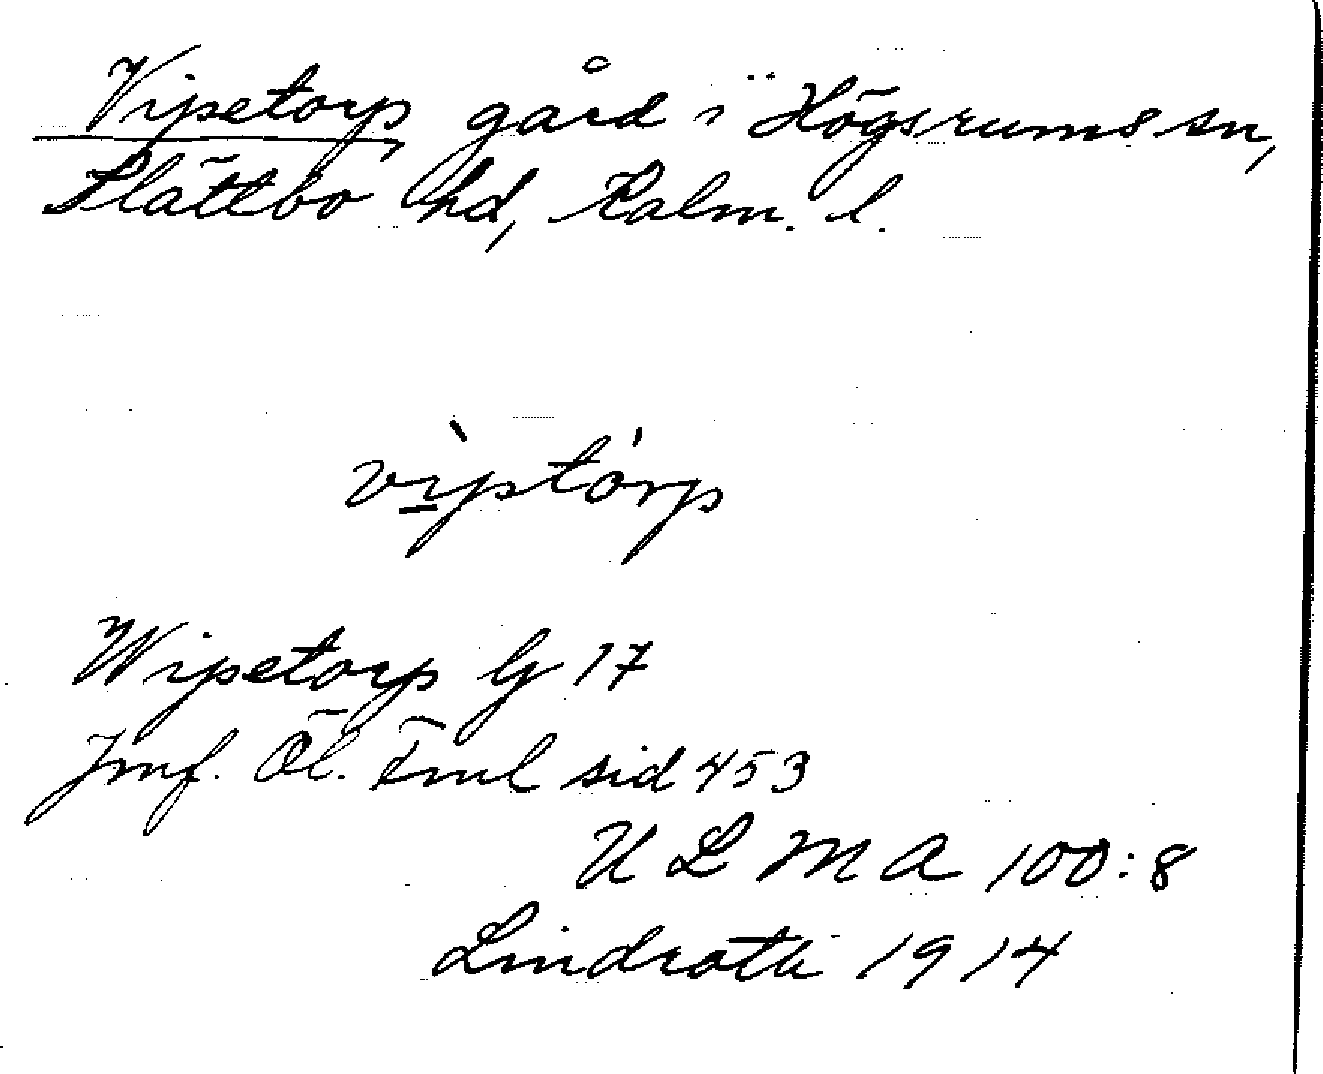 Vipetorp, gård i Högsrums sn,
Slättbo hd, Kalm. l.
vìptórp
Wipetorp G 17
Jmf. Öl. Fml sid 453
U L M A 100:8
Lindroth 1914